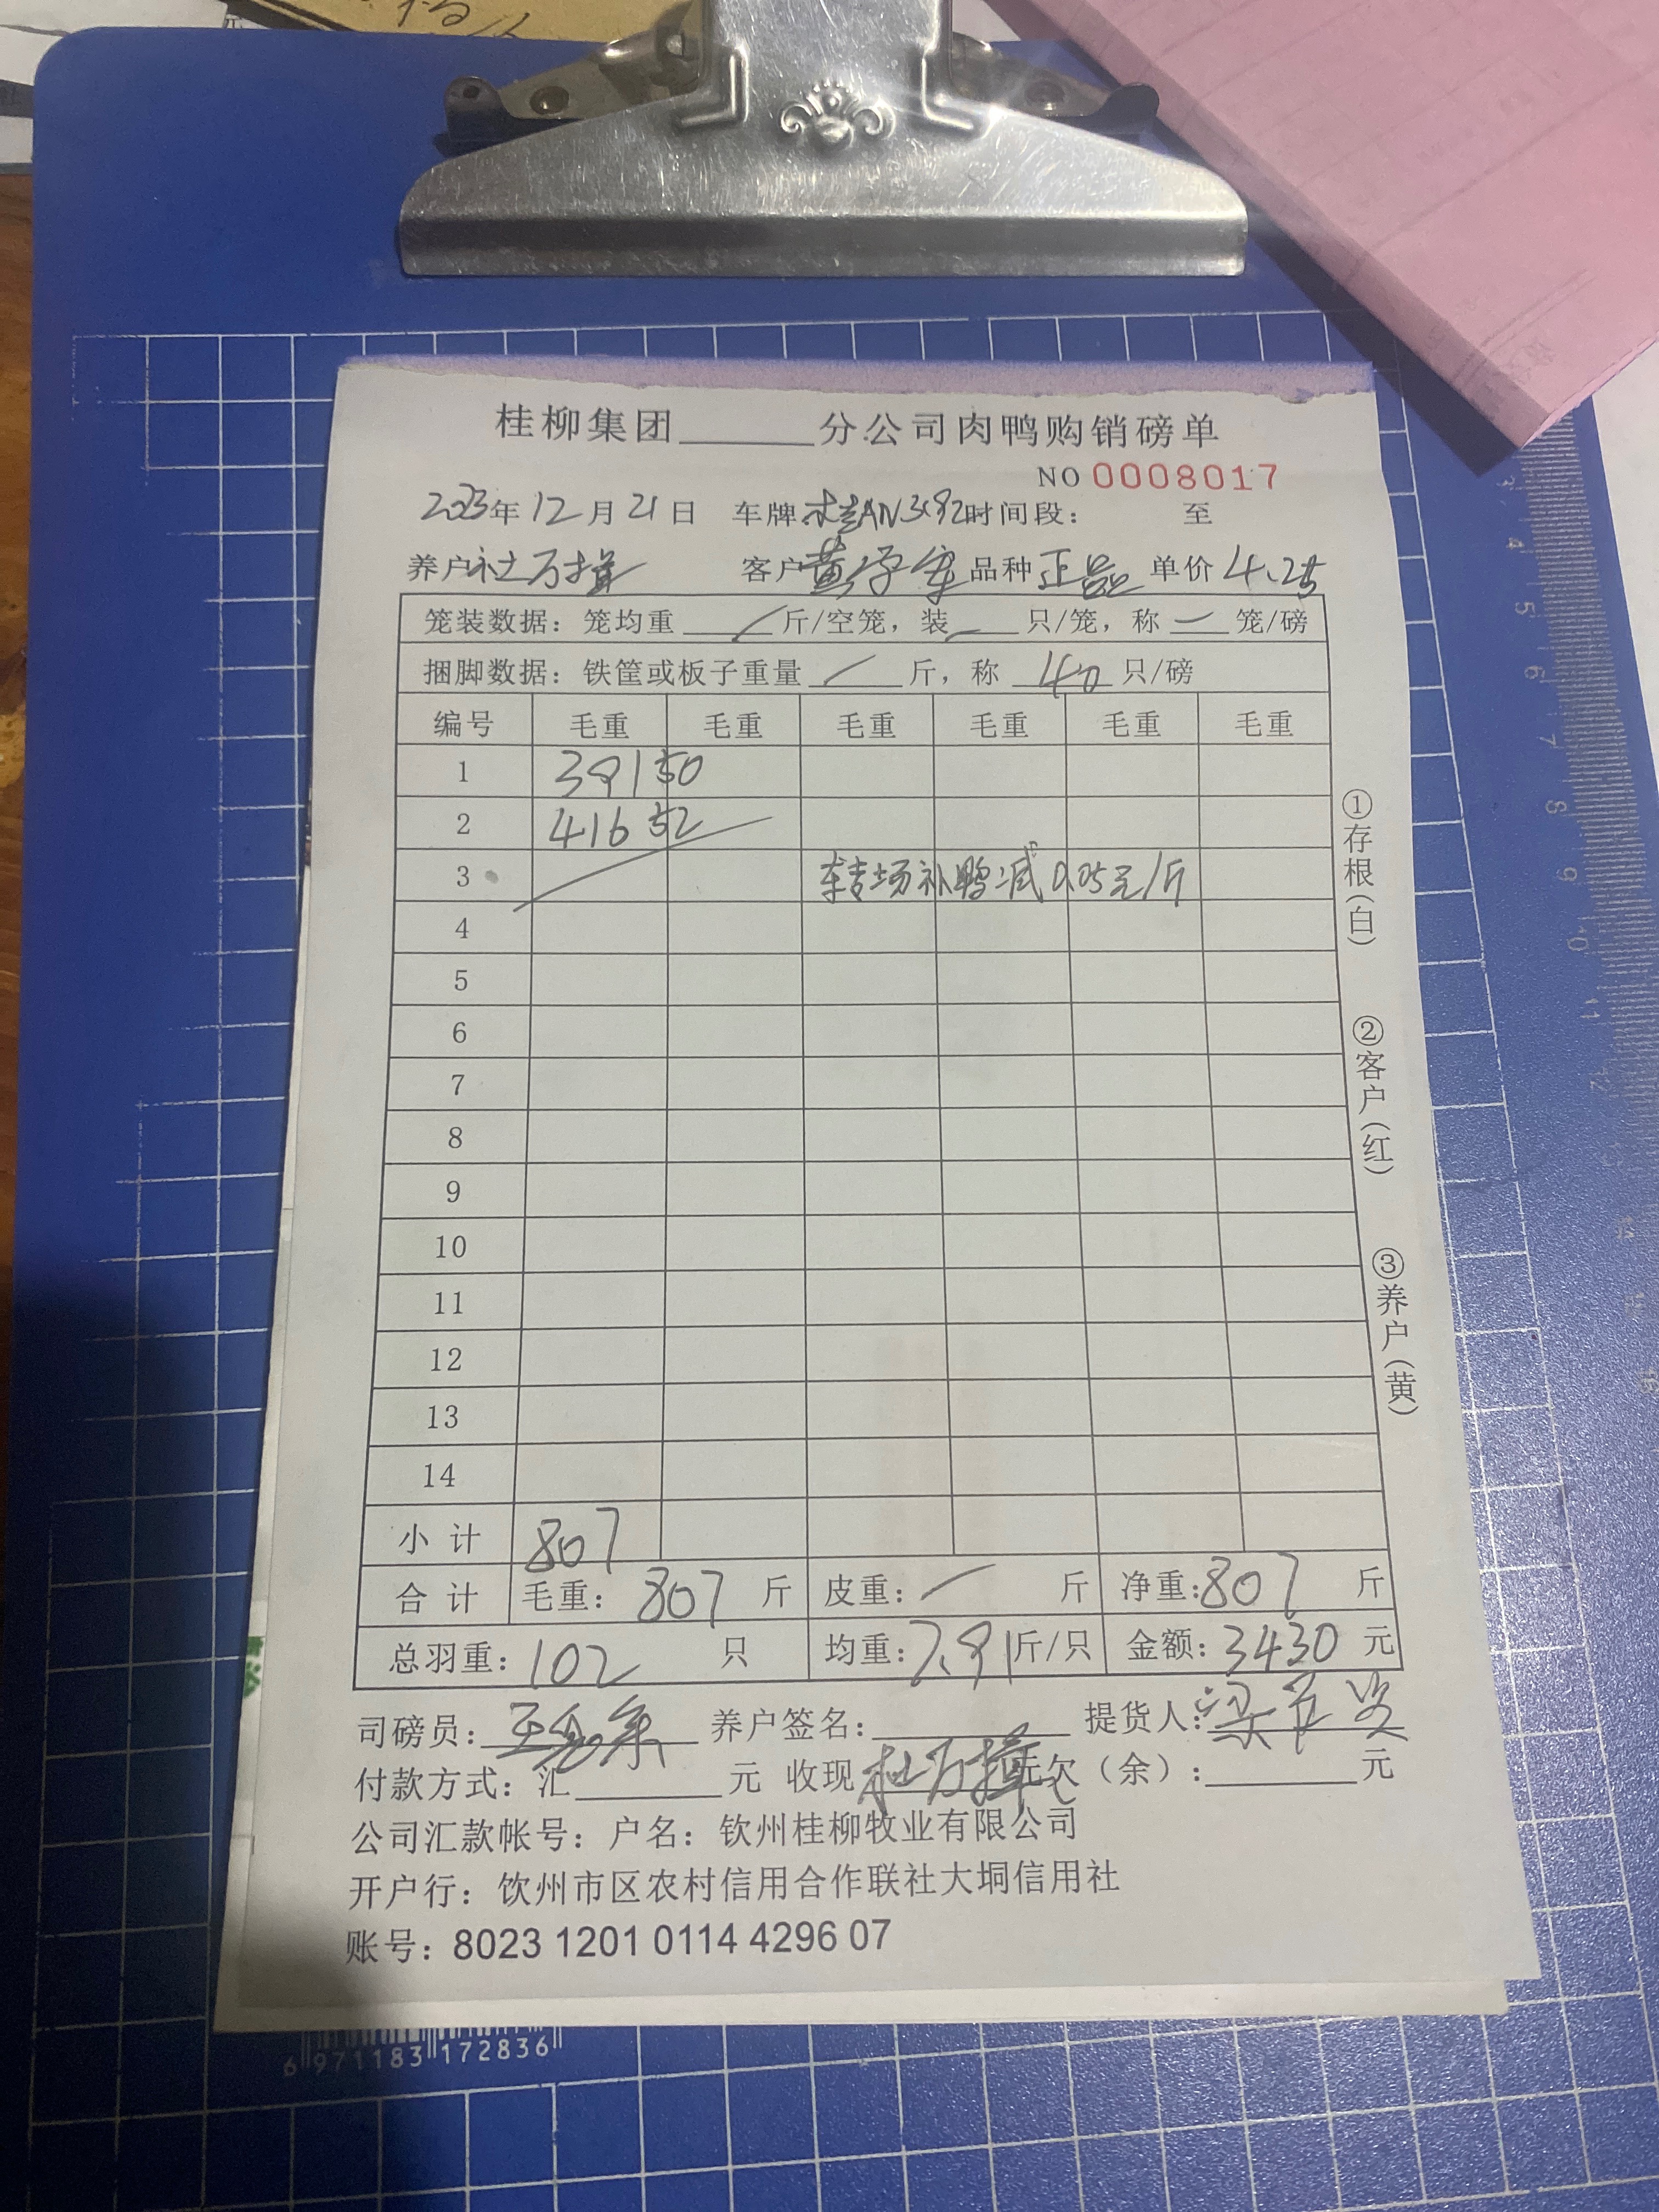 桂柳集团______分公司肉鸭购销磅单
NO 0008017
2023年12月21日 车牌:桂AN3C92时间段: 至
养户杜万撑 客户黄学军品种正品 单价4.25
笼装数据:笼均重 / 斤/空笼,装 — 只/笼,称 — 笼/磅
捆脚数据:铁筐或板子重量 / 斤,称 40 只/磅
编号 毛重 毛重 毛重 毛重 毛重 毛重
1 391 50
2 416 52
3 转场补鸭减0.05元/斤
4
5
6
7
8
9
10
11
12
13
14
小计 807
合计 毛重:807斤 皮重:/ 斤 净重:807斤
总羽重:102 只 均重:7.91斤/只 金额:3430元
司磅员: 养户签名: 提货人:
付款方式:汇______元 收现 杜万撑 元欠(余):______元
公司汇款帐号:户名:钦州桂柳牧业有限公司
开户行:饮州市区农村信用合作联社大垌信用社
账号:8023 1201 0114 4296 07
①存根(白)
②客户(红)
③养户(黄)
6 971183 172836